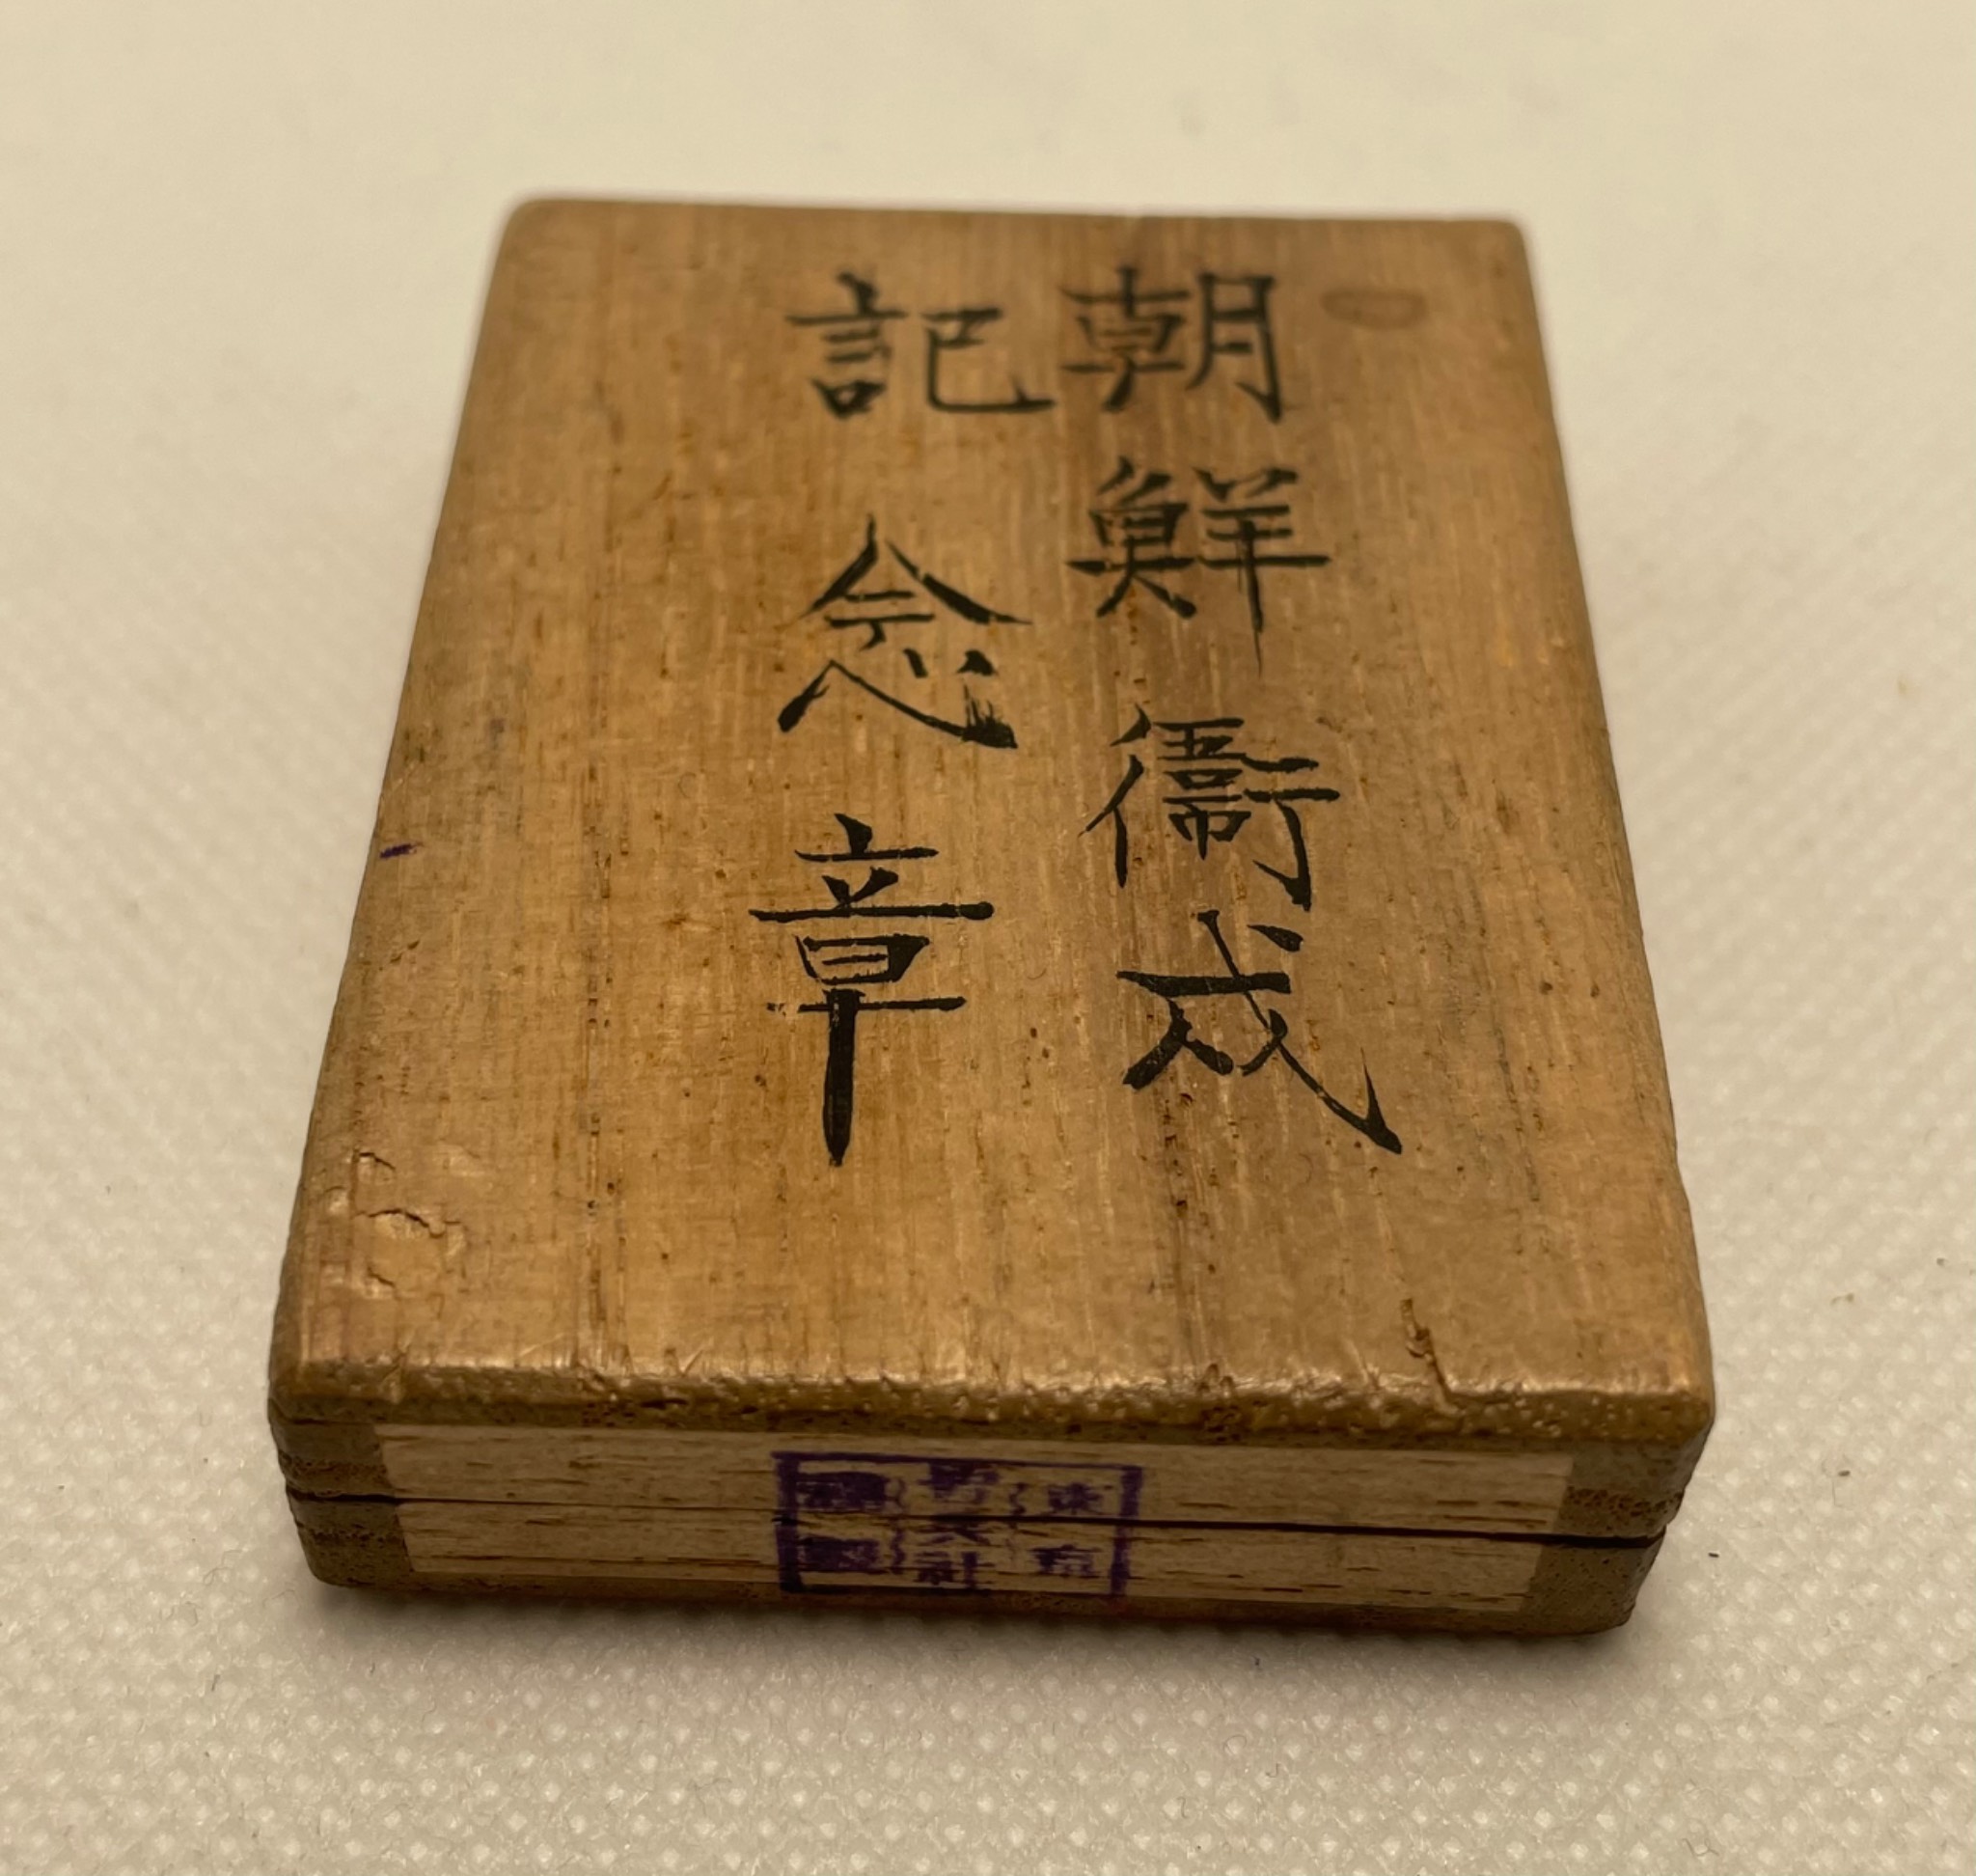 朝鮮衞戍
記念章
東京